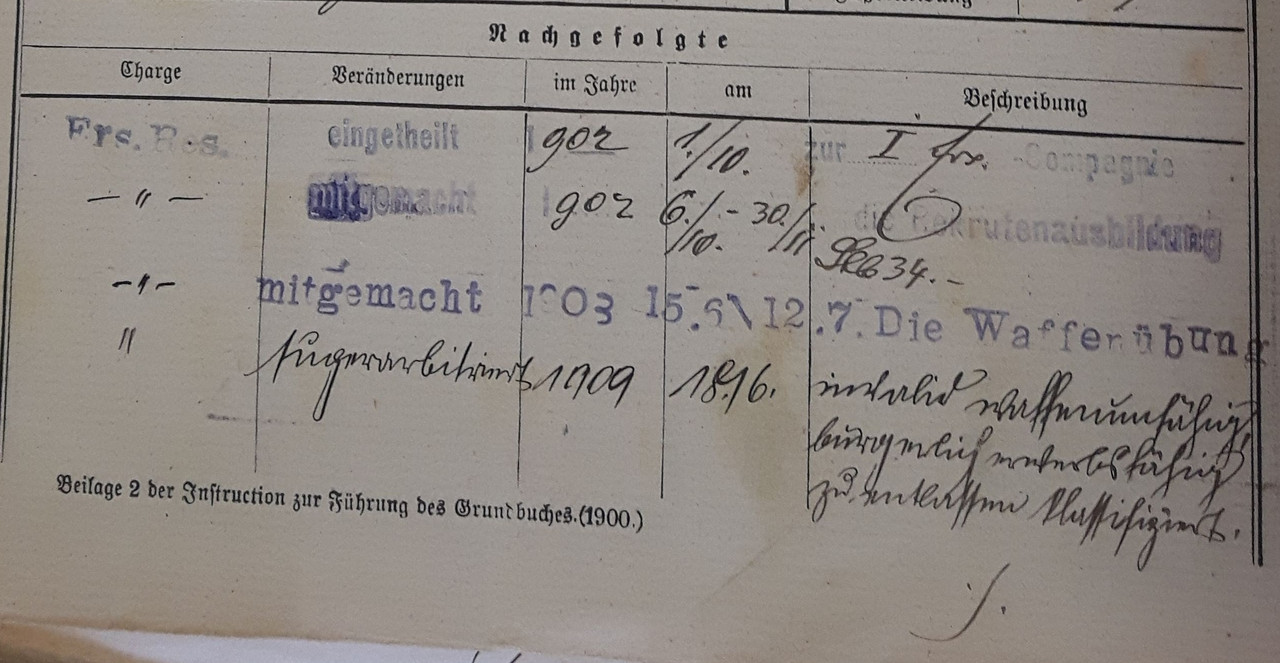 Nachgefolgte
Charge Veränderungen im Jahre am Beschreibung
Ers. Res. eingetheilt 1902 1./10. zur I Ers. Compagnie
— " — mitgemacht 1902 6./10. - 30./11. die Rekrutenausbildung
34.-
-"- mitgemacht 1903 15.6\12.7. Die Waffenübung
" superarbitriert 1909 18./6. invalid waffenunfähig
bürgerlich erwerbsfähig
zu entlassen klassifiziert.
Beilage 2 der Instruction zur Führung des Grundbuches. (1900.)